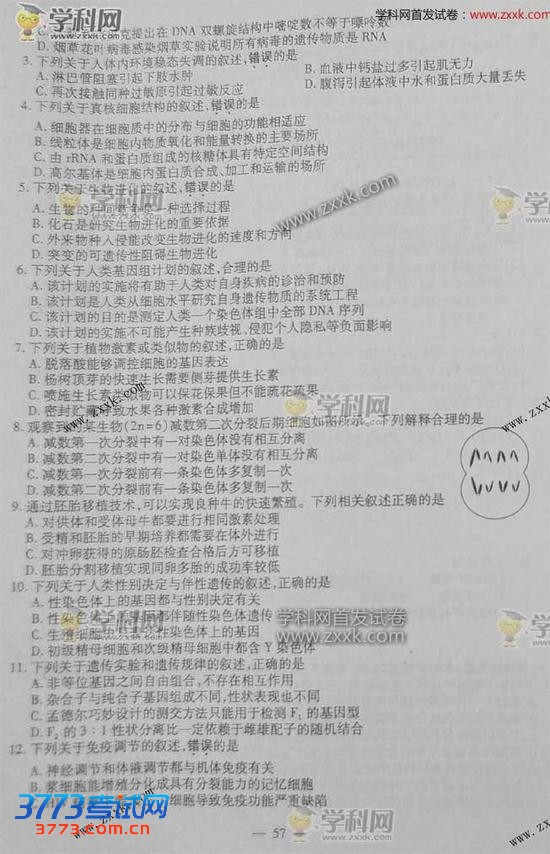 学科网首发试卷
www.zxxk.com
克提出在 DNA 双螺旋结构中嘧啶数不等于嘌呤数
D. 烟草花叶病毒感染烟草实验说明所有病毒的遗传物质是 RNA
3. 下列关于人体内环境稳态失调的叙述,错误的是
A. 淋巴管阻塞引起下肢水肿 B. 血液中钙盐过多引起肌无力
C. 再次接触同种过敏原引起过敏反应 D. 腹泻引起体液中水和蛋白质大量丢失
4. 下列关于真核细胞结构的叙述,错误的是
A. 细胞器在细胞质中的分布与细胞的功能相适应
B. 线粒体是细胞内物质氧化和能量转换的主要场所
C. 由 rRNA 和蛋白质组成的核糖体具有特定空间结构
D. 高尔基体是细胞内蛋白质合成、加工和运输的场所
5. 下列关于生物进化的叙述,错误的是
A. 生物的种间竞争是一种选择过程
B. 化石是研究生物进化的重要依据
C. 外来物种入侵能改变生物进化的速度和方向
D. 突变的可遗传性阻碍生物进化
6. 下列关于人类基因组计划的叙述,合理的是
A. 该计划的实施将有助于人类对自身疾病的诊治和预防
B. 该计划是人类从细胞水平研究自身遗传物质的系统工程
C. 该计划的目的是测定人类一个染色体组中全部 DNA 序列
D. 该计划的实施不可能产生种族歧视、侵犯个人隐私等负面影响
7. 下列关于植物激素或类似物的叙述,正确的是
A. 脱落酸能够调控细胞的基因表达
B. 杨树顶芽的快速生长需要侧芽提供生长素
C. 喷施生长素类似物可以保花保果但不能疏花疏果
D. 密封贮藏导致水果各种激素合成增加
8. 观察到某生物(2n=6)减数第二次分裂后期细胞如图所示。下列解释合理的是
A. 减数第一次分裂中有一对染色体没有相互分离
B. 减数第二次分裂中有一对染色单体没有相互分离
C. 减数第一次分裂前有一条染色体多复制一次
D. 减数第二次分裂前有一条染色体多复制一次
9. 通过胚胎移植技术,可以实现良种牛的快速繁殖。下列相关叙述正确的是
A. 对供体和受体母牛都要进行相同激素处理
B. 受精和胚胎的早期培养都需要在体外进行
C. 对冲卵获得的原肠胚检查合格后方可移植
D. 胚胎分割移植实现同卵多胎的成功率较低
10. 下列关于人类性别决定与伴性遗传的叙述,正确的是
A. 性染色体上的基因都与性别决定有关
B. 性染色体上的基因都伴随性染色体遗传
C. 生殖细胞中只表达性染色体上的基因
D. 初级精母细胞和次级精母细胞中都含 Y 染色体
11. 下列关于遗传实验和遗传规律的叙述,正确的是
A. 非等位基因之间自由组合,不存在相互作用
B. 杂合子与纯合子基因组成不同,性状表现也不同
C. 孟德尔巧妙设计的测交方法只能用于检测 F₁ 的基因型
D. F₂ 的 3:1 性状分离比一定依赖于雌雄配子的随机结合
12. 下列关于免疫调节的叙述,错误的是
A. 神经调节和体液调节都与机体免疫有关
B. 浆细胞能增殖分化成具有分裂能力的记忆细胞
细胞导致免疫功能严重缺陷
3773考试网
3773.com.cn
— 57
学科网
www.zxxk.com
学科网首发试卷
www.zxxk.com